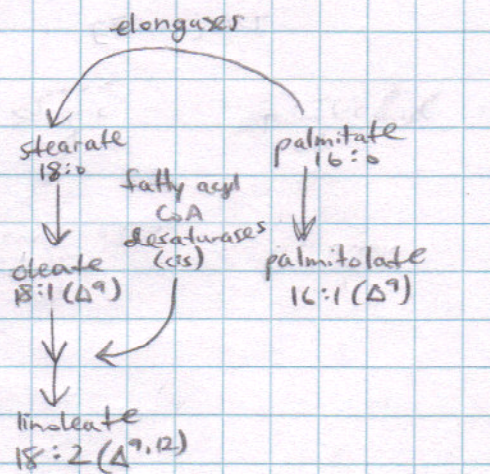 elongases
stearate
18:0
palmitate
16:0
fatty acyl
CoA
desaturases
(cis)
oleate
18:1 (Δ⁹)
palmitolate
16:1 (Δ⁹)
linoleate
18:2 (Δ⁹,¹²)